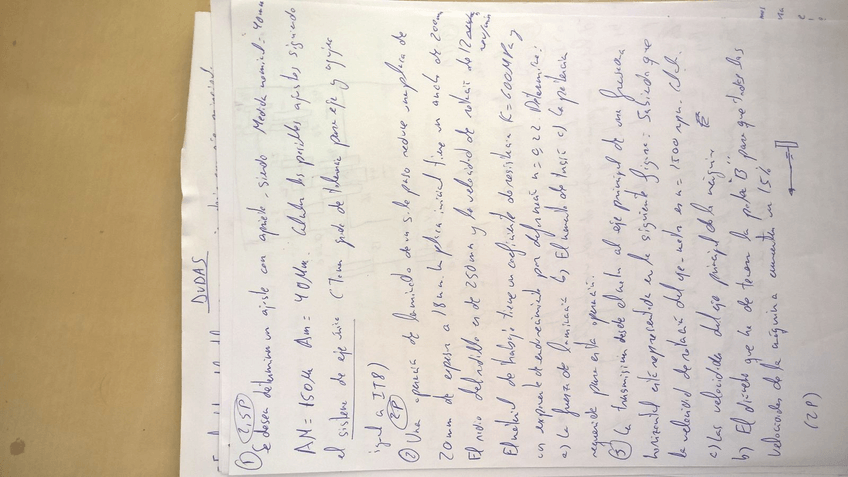 DUDAS
① 2,5P
Se desea determinar un ajuste con apriete, siendo Medida nominal: 40mm
AM = 150µm Am = 40µm. Calcular los posibles ajustes siguiendo
el sistema de eje único (Tome grado de tolerancia para eje y agujero
igual a IT8)
② 2P Una operación de laminado de un solo paso reduce una placa de
20mm de espesor a 18mm. La placa inicial tiene un ancho de 200mm
El radio del rodillo es de 250mm y la velocidad de rotación de 12
El material de trabajo tiene un coeficiente de resistencia K = 600MPa y
un exponente de endurecimiento por deformación n = 0,22 Determine:
a) La fuerza de laminación b) El momento de torsión c) La potencia
requerida para esta operación.
③ La transmisión desde el motor al eje principal de una fresadora
horizontal está representada en la siguiente figura: Sabiendo que
la velocidad de rotación del eje motor es n = 1500 rpm. Calcular
a) Las velocidades del eje principal de la máquina
b) El diámetro que ha de tener la polea B para que todas las
velocidades de la máquina aumenten un 15%
(2P)